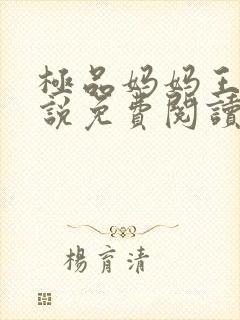 極品妈妈王
說免費閱讀
楊育清